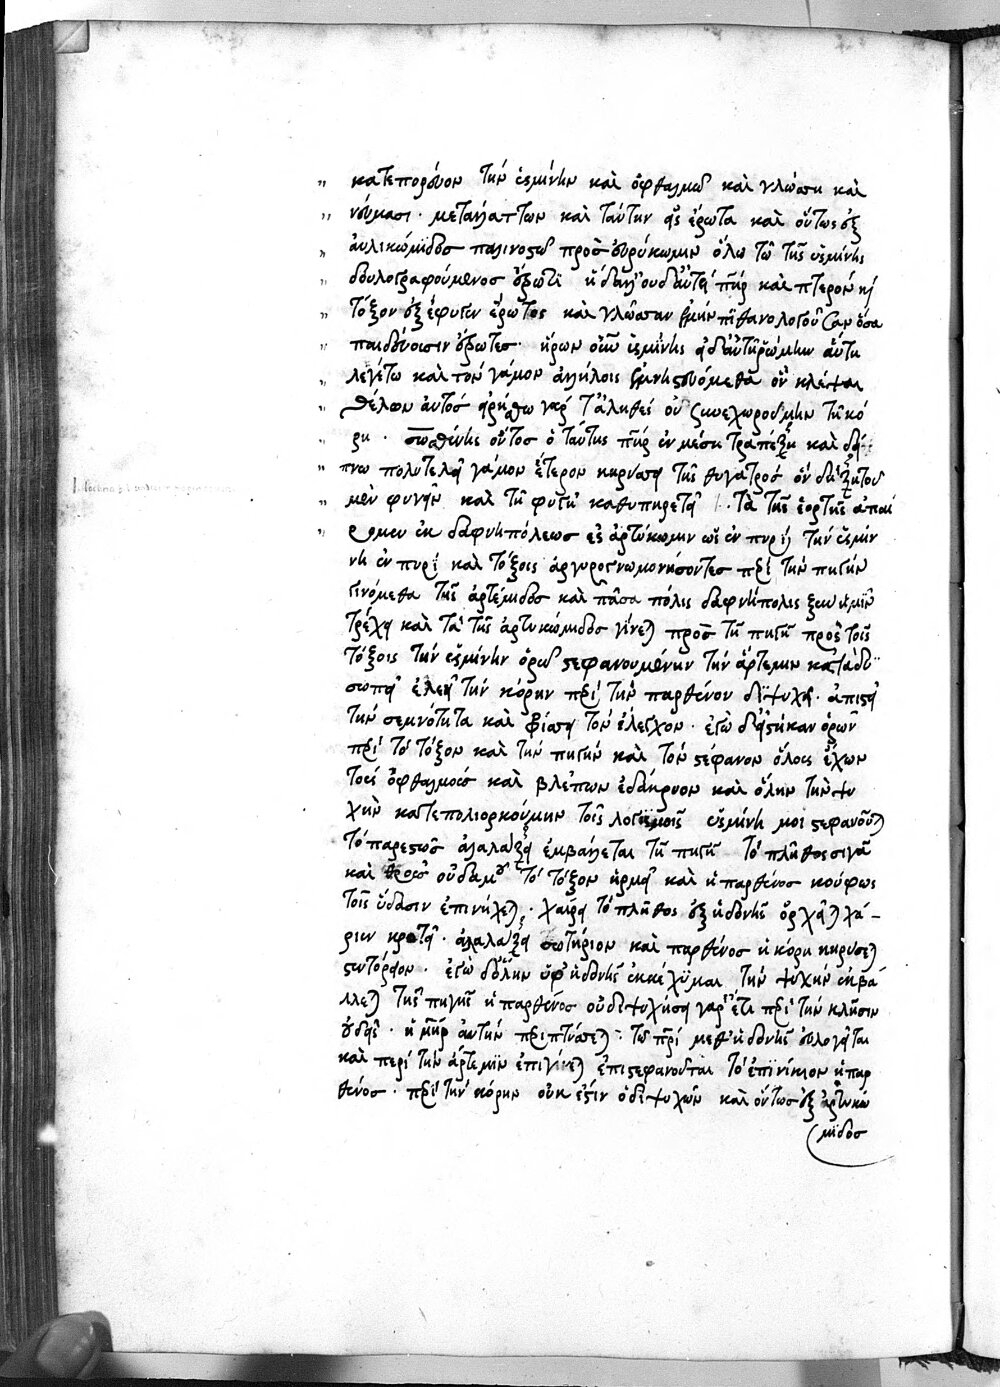 κατεπο τὴν ὑσμίνην καὶ ὀφθαλμῶ καὶ γλώσση καὶ
νεύμασι · μεταλλάττων καὶ ταύτην εἰς ἔρωτα καὶ οὕτως ἐξ
αὐλικώμιδος παλινοστῶ πρὸς εὐρύκωμιν ὅλω τῶ τῆς ὑσμίνης
δουλογραφούμενος ἔρωτι πῦρ καὶ πτερὸν καὶ
τόξον ἐξέφυσεν ἔρωτος καὶ γλῶσσαν ἐμὴν πιθανολογοῦσαν ὅσα
παιδεύουσιν ἔρωτες · ἤρων οὖν ὑσμίνης αὐτῆ
λεγέτω καὶ τὸν γάμον ἀλλήλοις ἐμνηστευόμεθα ὃν κλέψαι
θέλων αὐτὸς γὰρ τἀληθεῖ οὐ συνεχωρούμην τῆ κό
ρη · σωσθένης οὗτος ὁ ταύτης πατὴρ ἐν μέση τραπέζη καὶ δεί
πνω πολυτελεῖ γάμον ἕτερον κηρύσσει τῆς θυγατρὸς ὃν
μὲν φυγεῖν καὶ τῆ φυγῆ καθυπηρετεῖ · τὰ τῆς ἑορτῆς ἀπαί
ρομεν ἐκ δαφνηπόλεως εἰς ἀρτύκωμιν ὡς ἐν πυρὶ τὴν ὑσμίν
νη ἐν πυρὶ καὶ τόξοις ἀργυρογνωμονήσοντες περὶ τὴν πηγὴν
γινόμεθα τῆς ἀρτέμιδος καὶ πᾶσα πόλις δαφνήπολις ξὺν ἡμῖν
τρέχει καὶ τὰ τῆς ἀρτυκώμιδος γίνεται πρὸς τῆ πηγῆ πρὸς τοῖς
τόξοις τὴν ὑσμίνην ὁρῶ στεφανουμένην τὴν ἄρτεμιν καταδυ
σωπεῖ ἐλεεῖ τὴν κόρην περὶ τὴν παρθένον διψυχεῖ · ἀπιστεῖ
τὴν σεμνότητα καὶ βιάσῃ τὸν ἔλεγχον · ἐγὼ διεστήκειν ὁρῶν
περὶ τὸ τόξον καὶ τὴν πηγὴν καὶ τὸν στέφανον ὅλους ἔχων
τοὺς ὀφθαλμοὺς καὶ βλέπων ἐδάκρυον καὶ ὅλην τὴν ψυ
χὴν κατεπολιορκούμην τοῖς λογισμοῖς ὑσμίνη μοι στεφανοῦται
τὸ παρεστὼς ἀλαλάζει ἐμβάλλεται τῆ πηγῆ τὸ πλῆθος σιγᾶ
καὶ θροῦς οὐδαμοῦ τὸ τόξον ἠρεμεῖ καὶ ἡ παρθένος κούφως
τοῖς ὕδασιν ἐπινήχεται · χαίρει τὸ πλῆθος ἐξ ἡδονῆς ὀρχεῖται χά-
ριεν κροτεῖ · ἀλαλάζει σωτήριον καὶ παρθένος ἡ κόρη κηρύσσεται
στεντόρειον · ἐγὼ δ' ὅλην ὑφ' ἡδονῆς ἐκκέχυμαι τὴν ψυχὴν ἐκβά
λλεται τῆς πηγῆς ἡ παρθένος οὐ διψυχήσει γὰρ ἔτι περὶ τὴν κλῆσιν
οὐδείς · ἡ μήτηρ αὐτὴν περιπτύσσεται · τῶ πατρὶ μεθ' ἡδονῆς εὐλογεῖται
καὶ περὶ τὴν ἄρτεμιν ἐπιγίνεται ἐπιστεφανοῦται τὸ ἐπινίκιον ἡ παρ
θένος · περὶ τὴν κόρην οὐκ ἔστιν ὁ διψυχῶν καὶ οὕτως ἐξ ἀρτυκώ
μιδος